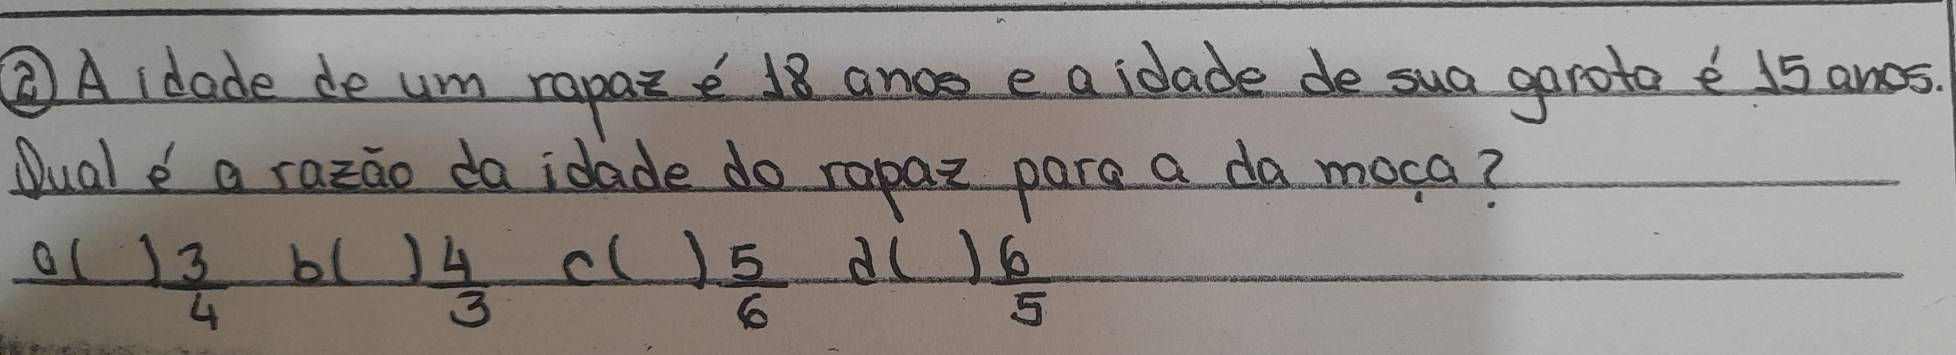 ② A idade de um rapaz é 18 anos e a idade de sua garota é 15 anos.
Qual é a razão da idade do rapaz para a da moça?
a( ) 3/4 b( ) 4/3 c( ) 5/6 d( ) 6/5